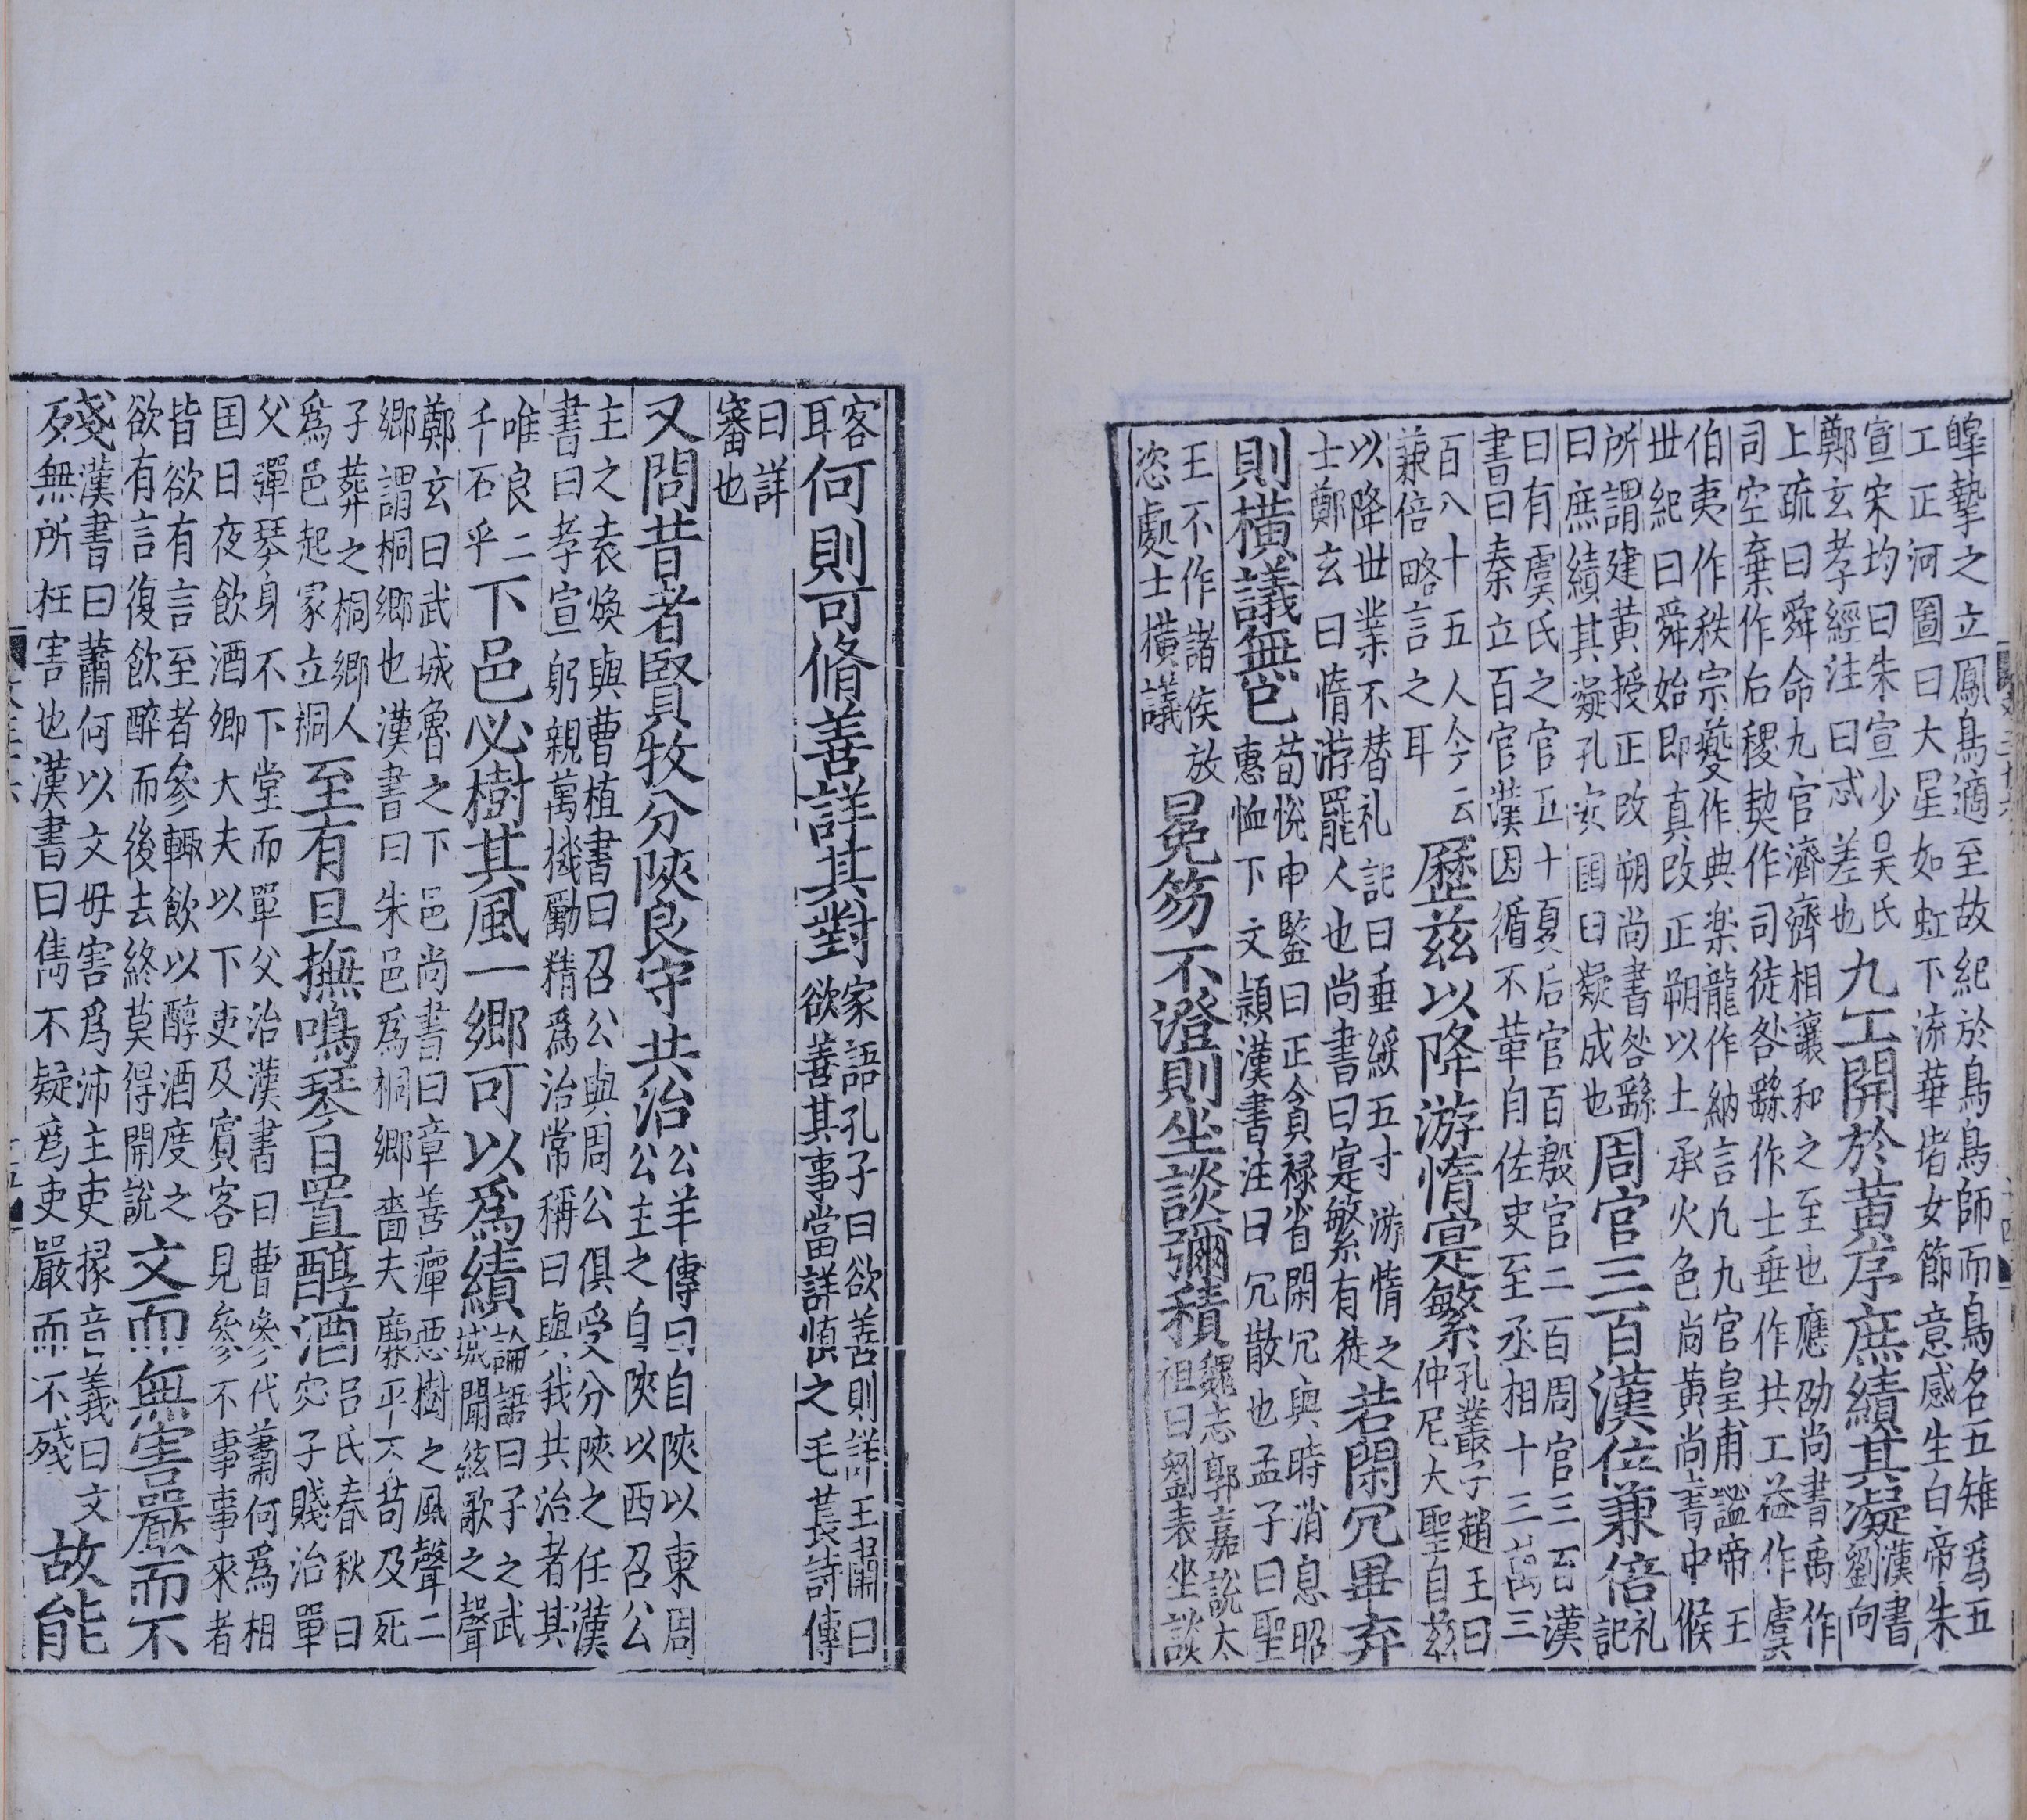 皥摯之立鳳鳥適至故紀於鳥鳥師而鳥名五雉爲五
工正河圖曰大星如虹下流華堵女節意感生白帝朱
宣宋均曰朱宣少昊氏
鄭玄孝經注曰忒差也
九工開於黃序庶績其凝
漢書
劉向
上疏曰舜命九官濟濟相讓和之至也應劭尚書禹作
司空棄作后稷契作司徒咎繇作士垂作共工益作虞
伯夷作秩宗夔作典楽龍作納言凡九官皇甫謐帝王
丗紀曰舜始即真改正朔以土承火色尚黃尚書中候
所謂建黃授正改朔尚書咎繇
曰庶績其凝孔安国曰凝成也
周官三百漢位兼倍
礼
記
曰有虞氏之官五十夏后官百殷官二百周官三百漢
書曰秦立百官漢因循不革自佐史至丞相十三萬三
百八十五人今云
兼倍略言之耳
歷茲以降游惰寔繁
孔叢子趙王曰
仲尼大聖自茲
以降丗業不替礼記曰垂緌五寸游惰之
士鄭玄曰惰游罷人也尚書曰寔繁有徒
若閑冗畢弃
則橫議無已
荀悅申鑒曰正貪禄省閑冗與時消息昭
惠恤下文穎漢書注曰冗散也孟子曰聖
王不作諸侯放
恣處士橫議
冕笏不澄則坐談彌積
魏志郭嘉說太
祖曰劉表坐談
客
耳
何則可脩善詳其對
家語孔子曰欲善則詳王肅曰
欲善其事當詳慎之毛萇詩傳
曰詳
審也
又問昔者賢牧分陝良守共治
公羊傳曰自陝以東周
公主之自陝以西召公
主之袁煥與曹植書曰召公與周公俱受分陝之任漢
書曰孝宣躬親萬機勵精爲治常稱曰與我共治者其
唯良二
千石乎
下邑必樹其風一鄉可以爲績
論語曰子之武
城聞絃歌之聲
鄭玄曰武城魯之下邑尚書曰章善癉惡樹之風聲二
鄉謂桐鄉也漢書曰朱邑爲桐鄉嗇夫廉平不苛及死
子葬之桐鄉人
爲邑起冢立祠
至有旦撫鳴琴日置醇酒
吕氏春秋曰
宓子賤治單
父彈琴身不下堂而單父治漢書曰曹參代蕭何爲相
国日夜飲酒卿大夫以下吏及賓客見參不事事來者
皆欲有言至者參輒飲以醇酒度之
欲有言復飲醉而後去終莫得開說
文而無害嚴而不
殘
漢書曰蕭何以文毋害爲沛主吏掾音義曰文
無所枉害也漢書曰雋不疑爲吏嚴而不殘
故能